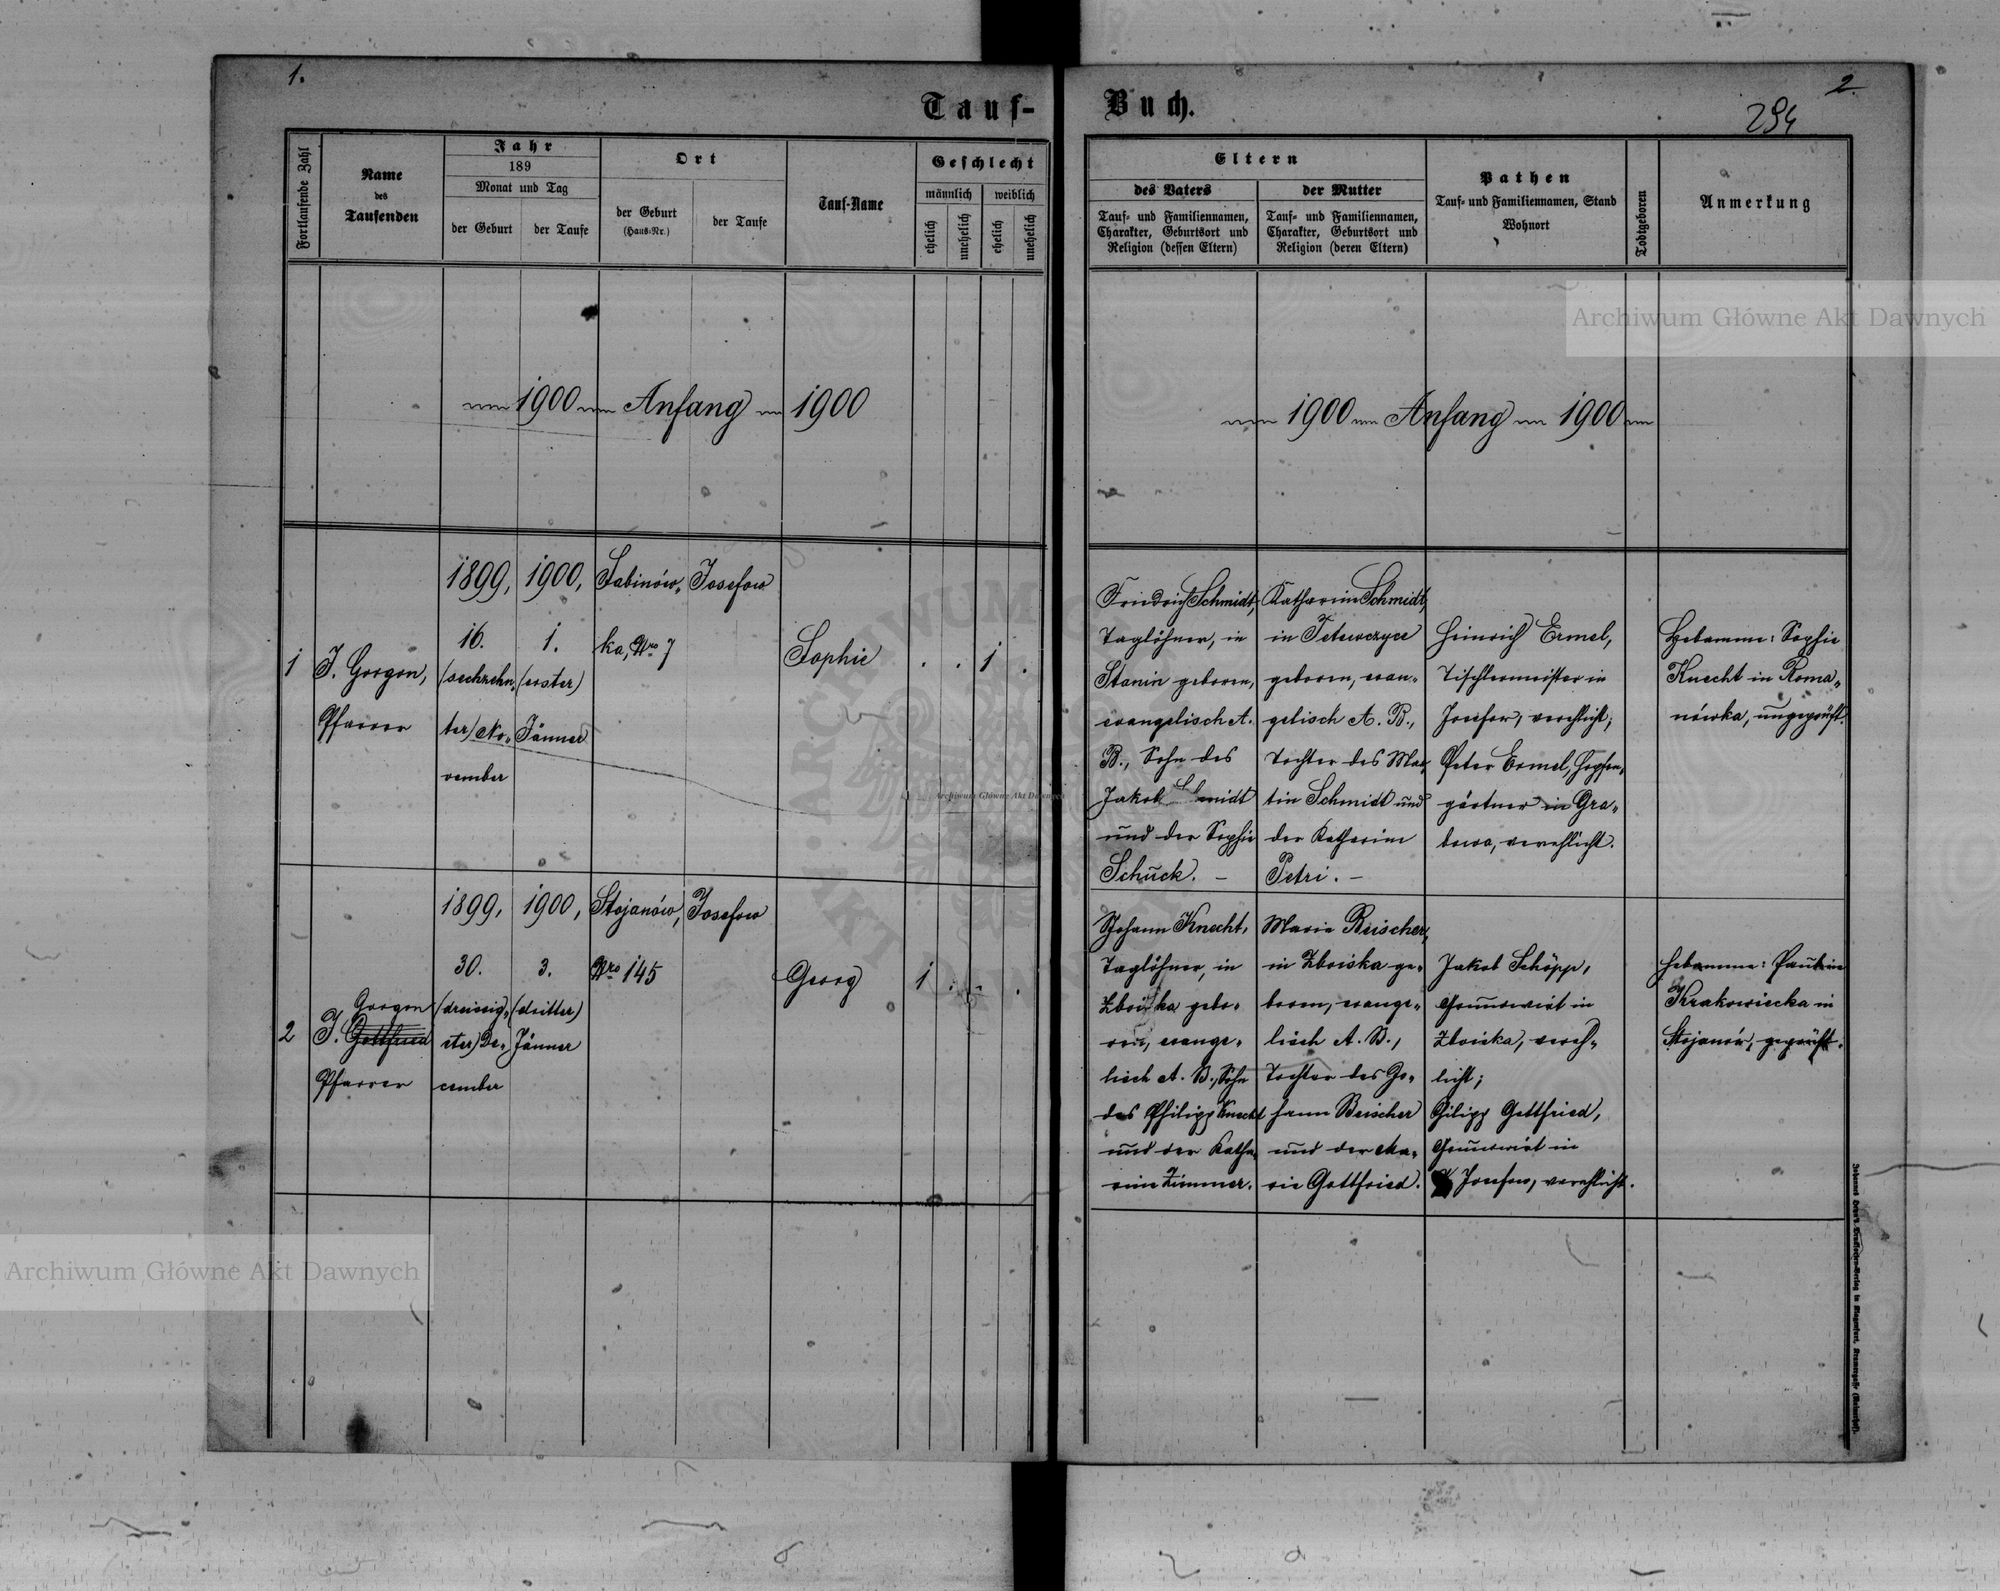 1.
Tauf-
Fortlaufende Zahl
Name
des
Taufenden
Jahr
189
Monat und Tag
der Geburt
der Taufe
Ort
der Geburt
(Haus-Nr.)
der Taufe
Tauf-Name
Geschlecht
männlich
weiblich
ehelich
unehelich
ehelich
unehelich
1900 Anfang 1900
1
J. Gorgon,
Pfarrer
1899,
16.
(sechzehn„
ter) No„
vember
1900,
1.
(erster)
Jänner
Sabinów„
ka, Nro 7
Josefow
Sophie
. . 1 .
2
Gorgon
J. Gottfried
Pfarrer
1899,
30.
(dreissig„
ster) De„
cember
1900,
3.
(dritter)
Jänner
Stojanów,
Nro 145
Josefow
Georg
1 . . .
Buch.
2.
294
Eltern
des Vaters
Tauf- und Familiennamen,
Charakter, Geburtsort und
Religion (dessen Eltern)
der Mutter
Tauf- und Familiennamen,
Charakter, Geburtsort und
Religion (deren Eltern)
Pathen
Tauf- und Familiennamen, Stand
Wohnort
Todtgeboren
Anmerkung
1900 Anfang 1900
Friedrich Schmidt,
Taglöhner, in
Stanin geboren,
evangelisch A.
B., Sohn des
Jakob Schmidt
und der Sophie
Schuck. –
Katharina Schmidt,
in Tetewczyce
geboren, evan„
gelisch A. B.,
Tochter des Mar„
tin Schmidt und
der Katharina
Petri. –
Heinrich Ermel,
Tischlermeister in
Josefow, verehlicht;
Peter Ermel, Hopfen„
gärtner in Gra„
bowa, verehlicht.
Hebamme: Sophie
Knecht in Roma„
nówka, ungeprüft.
Johann Knecht,
Taglöhner, in
Zboiska gebo„
ren, evange„
lisch A. B., Sohn
des Philipp Knecht
und der Katha„
rina Zimmer.
Maria Beischer,
in Zboiska ge„
boren, evange„
lisch A. B.,
Tochter des Jo„
hann Beischer
und der Ma„
rie Gottfried.
Jakob Schöpp,
Grundwirt in
Zboiska, vereh„
licht;
Philipp Gottfried,
Grundwirt in
Josefow, verehlicht.
Hebamme: Paulina
Krakowiecka in
Stojanów, geprüft.
Archiwum Główne Akt Dawnych
Archiwum Główne Akt Dawnych
Archiwum Główne Akt Dawnych